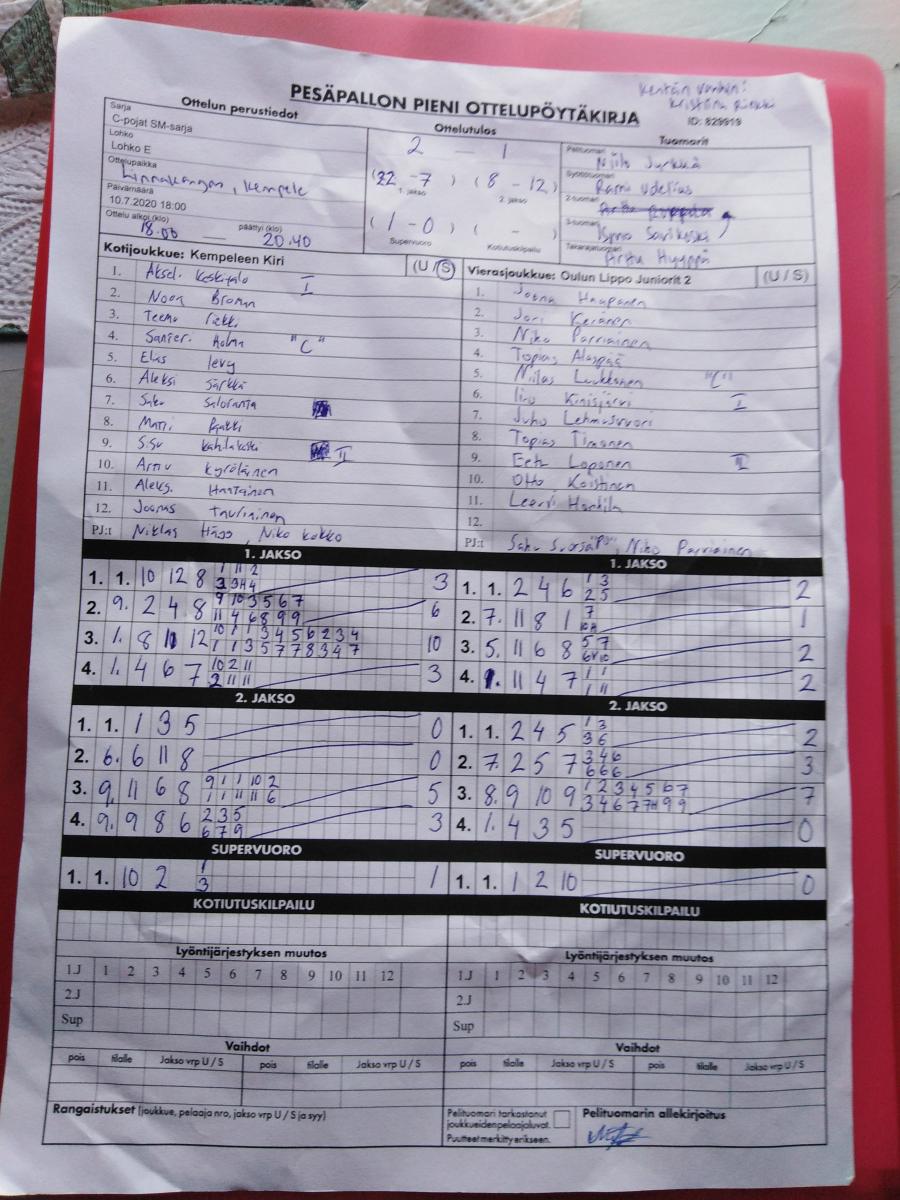 Kentän vanhin:
PESÄPALLON PIENI OTTELUPÖYTÄKIRJA
ID: 829919
Ottelun perustiedot
Ottelutulos
Tuomarit
Sarja
C-pojat SM-sarja
Lohko
Lohko E
Ottelupaikka
Linnakangas, Kempele
Päivämäärä
10.7.2020 18:00
Ottelu alkoi (klo) päättyi (klo)
18.00 — 20.40
2 — 1
(22 - 7) (8 - 12)
1. jakso 2. jakso
(1 - 0) ( - )
Supervuoro Kotiutuskilpailu
Pelituomari
Niilo Jyrkkä
Syöttötuomari
Rami Udelius
2-tuomari
3-tuomari
Ismo Savikoski
Takarajatuomari
Arttu Hyyppä
Kotijoukkue: Kempeleen Kiri (U / S)
1. Akseli Keskitalo I
2. Noon Broman
3. Teemu Piekki
4. Santeri Holma "C"
5. Elias Levy
6. Aleksi Särkkä
7. Saku Saloranta
8. Matti
9. Kahlakoski II
10. Arttu Kyröläinen
11. Aleksi Hautainen
12. Joonas Tauriainen
PJ:t Niklas Hägg, Niko Kokko
Vierasjoukkue: Oulun Lippo Juniorit 2 (U / S)
1. Joona Haapanen
2. Joni Keränen
3. Niko Parviainen
4. Topias Alaspää
5. Niilas Luukkonen "C"
6. Iiro Kinisjärvi I
7. Juho Lehmusvuori
8. Topias Timonen
9. Eetu Loponen II
10. Otto Koistinen
11. Leevi Hankila
12.
PJ:t Saku , Niko Parviainen
1. JAKSO
1. 1. 10 12 8 1 11 2 3
3 3H 4
2. 9. 2 4 8 9 10 3 5 6 7 6
11 4 6 8 9 9
3. 1. 8 11 12 10 1 1 3 4 5 6 2 3 4 10
1 1 3 5 7 7 8 3 4 7
4. 1. 4 6 7 10 2 11 3
2 11 11
1. JAKSO
1. 1. 2 4 6 1 3 2
2 5
2. 7. 11 8 1 7 1
3. 5. 11 6 8 5 7 2
4. 1. 11 4 7 1 1 2
1 11
2. JAKSO
1. 1. 1 3 5 0
2. 6. 6 11 8 0
3. 9. 11 6 8 9 1 1 10 2 5
1 1 11 11 6
4. 9. 9 8 6 2 3 5 3
6 7 9
2. JAKSO
1. 1. 2 4 5 1 3 2
3 6
2. 7. 2 5 7 3 4 6 3
6 6 6
3. 8. 9 10 9 1 2 3 4 5 6 7 7
3 4 6 7 7H 9 9
4. 1. 4 3 5 0
SUPERVUORO
1. 1. 10 2 1 1
3
SUPERVUORO
1. 1. 1 2 10 0
KOTIUTUSKILPAILU
KOTIUTUSKILPAILU
Lyöntijärjestyksen muutos
1.J 1 2 3 4 5 6 7 8 9 10 11 12
2.J
Sup
Lyöntijärjestyksen muutos
1.J 1 2 3 4 5 6 7 8 9 10 11 12
2.J
Sup
Vaihdot
pois tilalle Jakso vrp U / S pois tilalle Jakso vrp U / S
Vaihdot
pois tilalle Jakso vrp U / S pois tilalle Jakso vrp U / S
Rangaistukset (joukkue, pelaaja nro, jakso vrp U / S ja syy)
Pelituomari tarkastanut
joukkueiden pelaajaluvat.
Puutteet merkitty erikseen.
Pelituomarin allekirjoitus